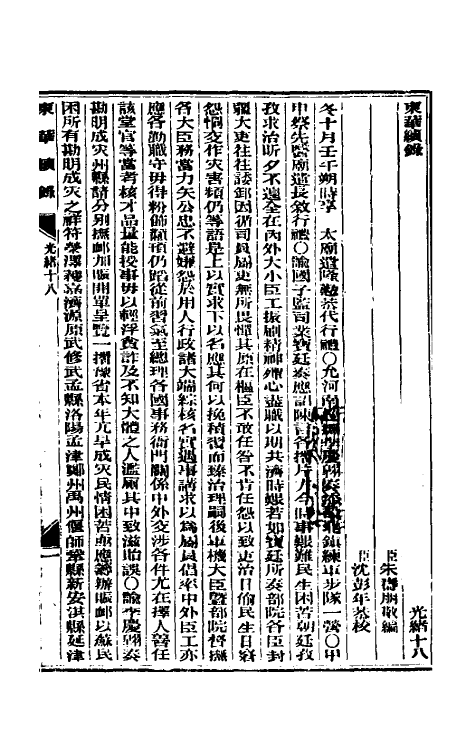 東華續錄
光緒十八
臣朱壽朋敬編
臣沈彭年恭校
冬十月壬午朔時享　太廟遣
代行禮〇允河南
練軍步隊一營〇甲
申祭先醫廟遣長敘行禮〇諭國子監司業寶廷奏應詔陳言各摺片方今時事艱難民生困苦朝廷孜
孜求治昕夕不遑全在內外大小臣工振刷精神殫心盡職以期共濟時艱若如寶廷所奏部院各臣封
疆大吏往往諉卸因循司員屬吏無所畏憚其原在樞臣不敢任咎不肯任怨以致吏治日偷民生日窘
怨恫交作灾害頻仍等語是上以實求下以名應其何以挽積習而臻治理嗣後軍機大臣暨部院督撫
各大臣務當力矢公忠不避嫌怨於用人行政諸大端綜核名實遇事講求以為屬員倡率中外臣工亦
應各勤職守毋得粉飾顢頇仍蹈從前習氣至總理各國事務衙門關係中外交涉各件尤在擇人醫任
該堂官等當考核才品量能授事毋以輕浮貪詐及不知大體之人濫廁其中致滋貽誤〇諭李慶翱奏
勘明成灾州縣請分別撫䘏加賑開單呈覽一摺豫省本年亢旱成灾民情困苦亟應籌辦賑䘏以蘇民
困所有勘明成灾之祥符滎澤獲嘉濟源原武修武孟縣洛陽孟津鄭州禹州偃師鞏縣新安淇縣延津
東華續錄
光緒十八